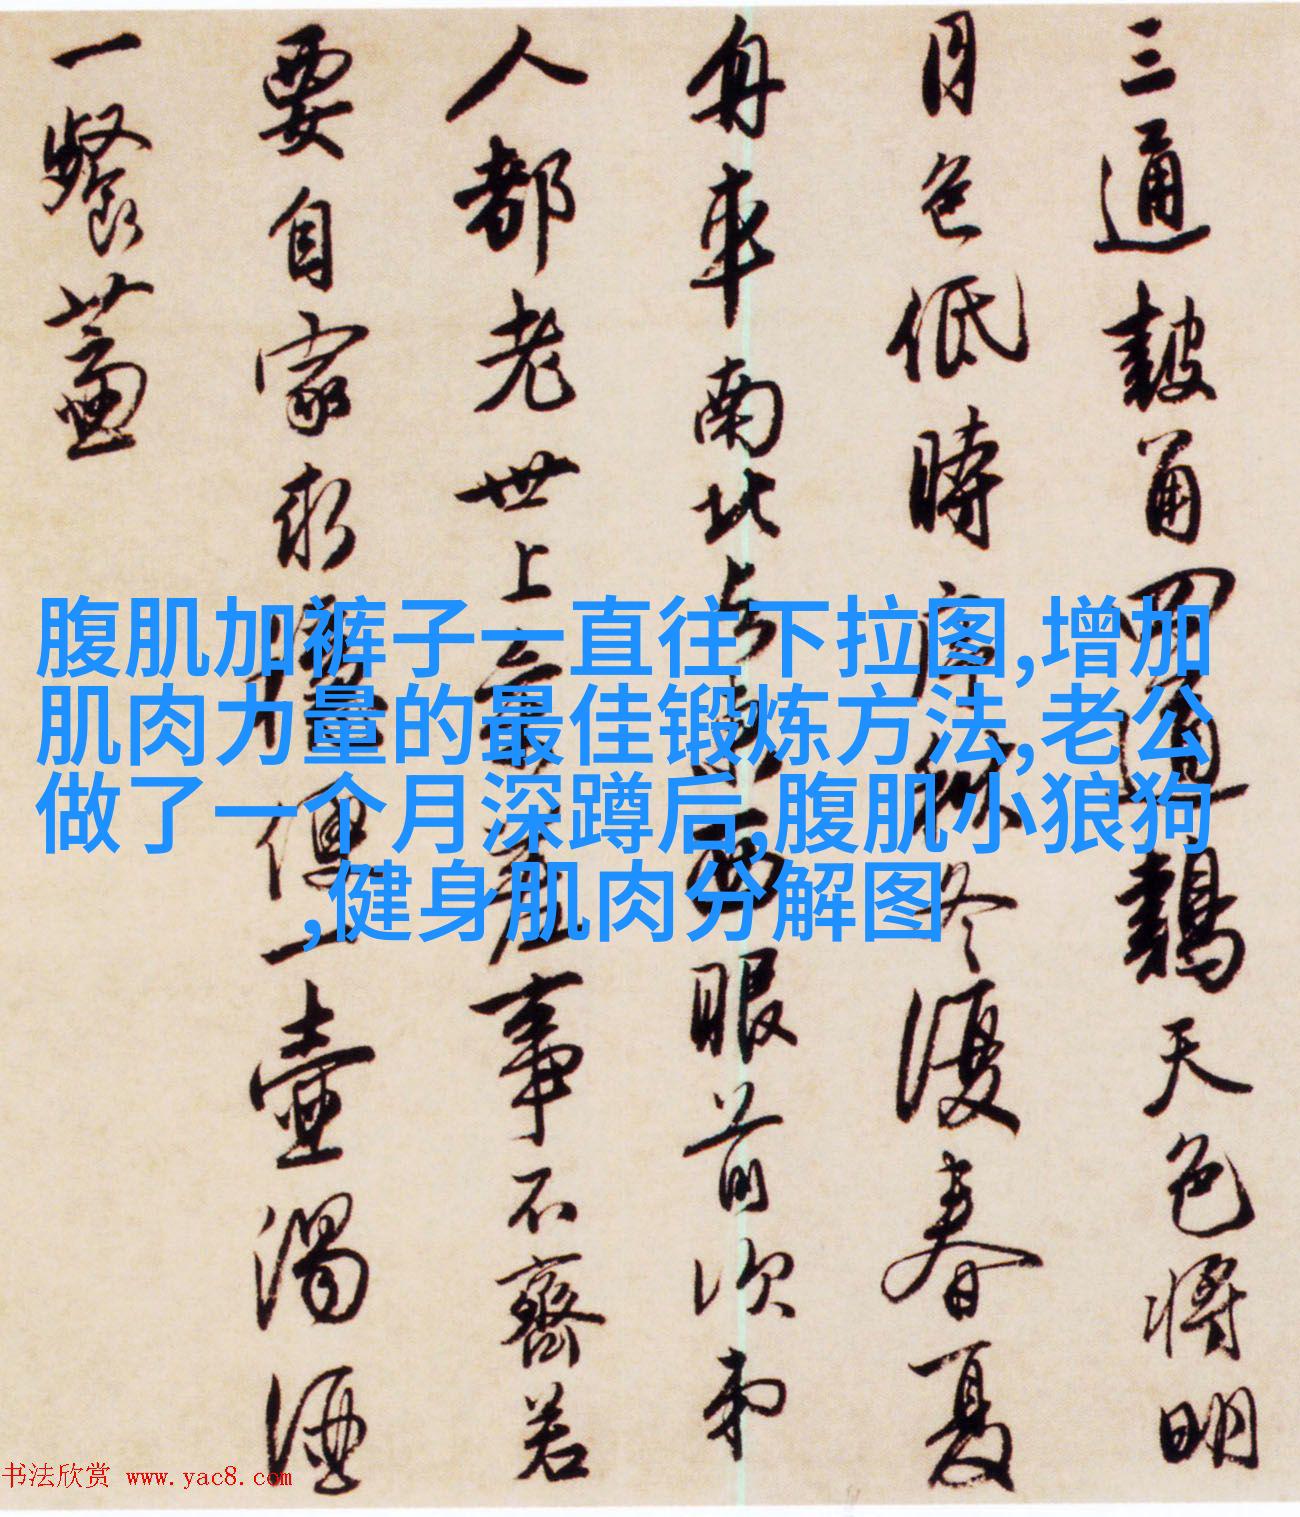 三通鼓角四通鷄天色將明
月色低時序秋冬復春夏
舟車南北與東西眼前次第
人都老世上
事不齊若
要自家求
一壺濁酒
一餐虀
腹肌加裤子一直往下拉图,增加
肌肉力量的最佳锻炼方法,老公
做了一个月深蹲后,腹肌小狼狗
,健身肌肉分解图
书法欣赏 www.yac8.com